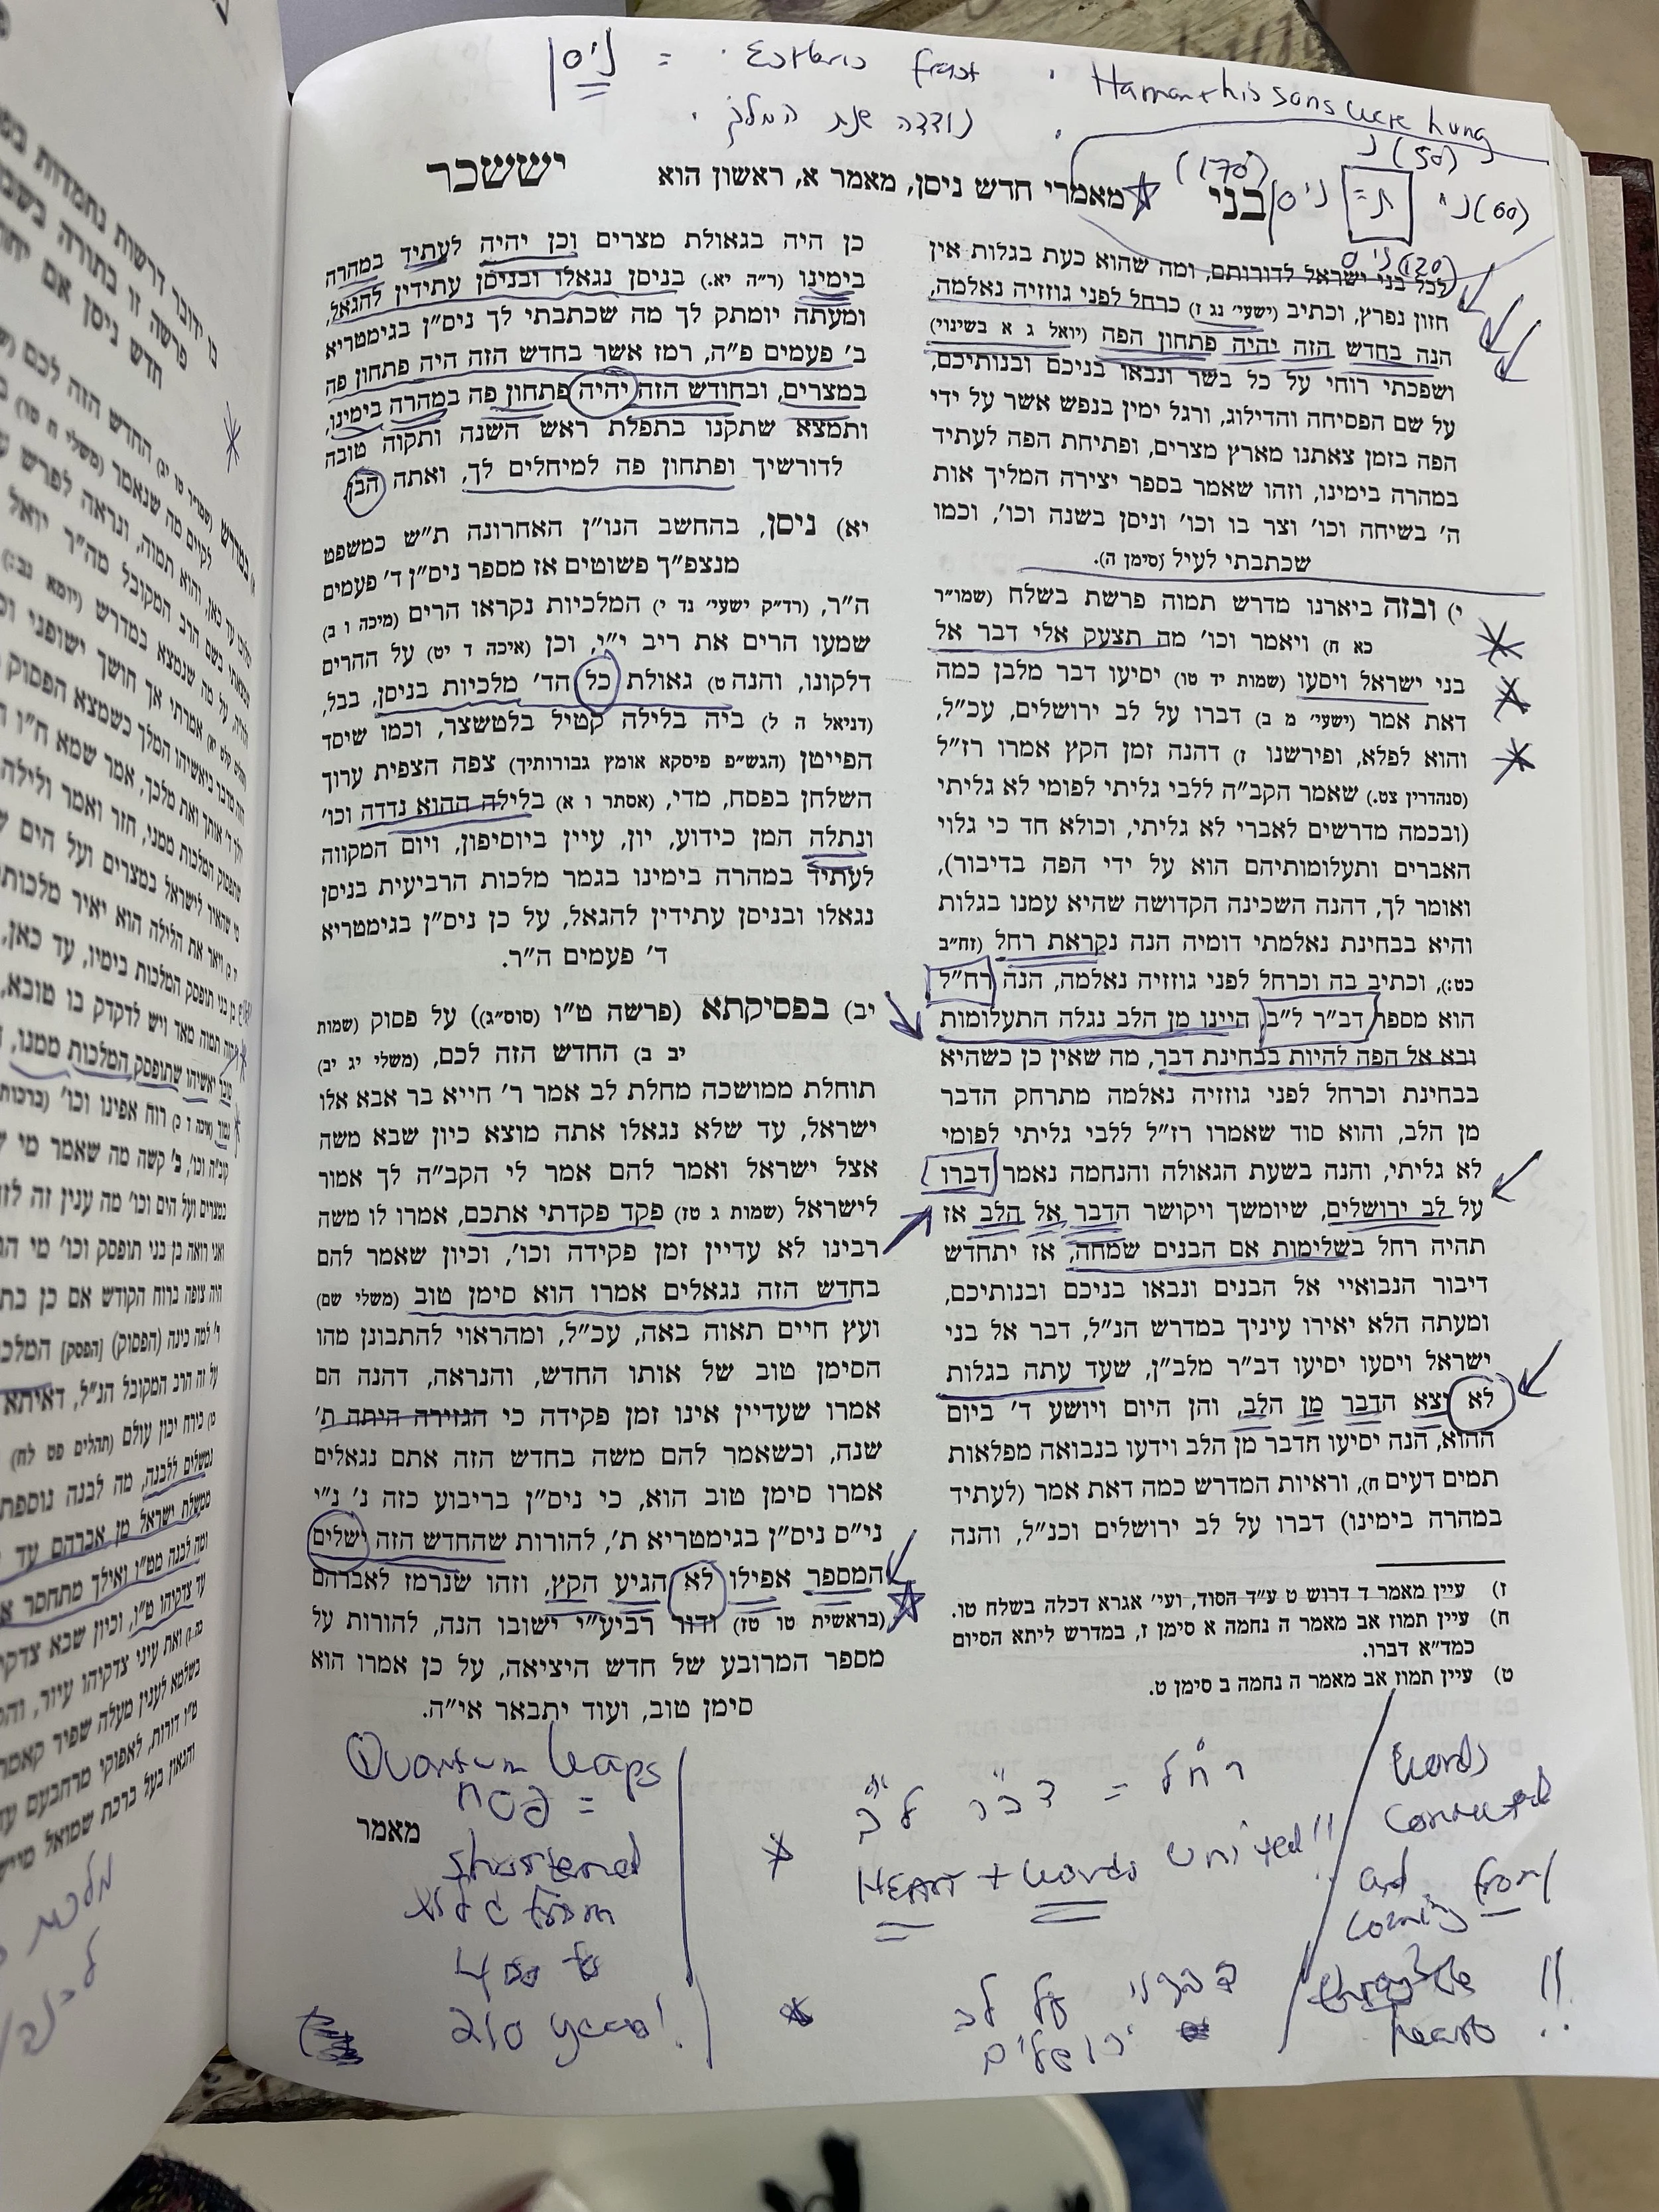 ניסן = · Esther's feast · Haman + his sons were hung
· נדדה שנת המלך ·
נ (50)
(170) ניסן ת= ני (60)
ניס (120)
בני מאמרי חדש ניסן, מאמר א, ראשון הוא יששכר
לכל בני ישראל לדורותם, ומה שהוא כעת בגלות אין
חזון נפרץ, וכתיב (ישעי׳ נג ז) כרחל לפני גוזזיה נאלמה,
הנה בחדש הזה יהיה פתחון הפה (יואל ג א בשינוי)
ושפכתי רוחי על כל בשר ונבאו בניכם ובנותיכם,
על שם הפסיחה והדילוג, ורגל ימין בנפש אשר על ידי
הפה בזמן צאתנו מארץ מצרים, ופתיחת הפה לעתיד
במהרה בימינו, וזהו שאמר בספר יצירה המליך אות
ה׳ בשיחה וכו׳ וצר בו וכו׳ וניסן בשנה וכו׳, וכמו
שכתבתי לעיל (סימן ה).
י) ובזה ביארנו מדרש תמוה פרשת בשלח (שמו״ר
כא ח) ויאמר וכו׳ מה תצעק אלי דבר אל
בני ישראל ויסעו (שמות יד טו) יסיעו דבר מלבן כמה
דאת אמר (ישעי׳ מ ב) דברו על לב ירושלים, עכ״ל,
והוא לפלא, ופירשנו ז) דהנה זמן הקץ אמרו רז״ל
(סנהדרין צט.) שאמר הקב״ה ללבי גליתי לפומי לא גליתי
(ובכמה מדרשים לאברי לא גליתי, וכולא חד כי גלוי
האברים ותעלומותיהם הוא על ידי הפה בדיבור),
ואומר לך, דהנה השכינה הקדושה שהיא עמנו בגלות
והיא בבחינת נאלמתי דומיה הנה נקראת רחל (זח״ב
כט:), וכתיב בה וכרחל לפני גוזזיה נאלמה, הנה רח״ל
הוא מספר דב״ר ל״ב, היינו מן הלב נגלה התעלומות
ובא אל הפה להיות בבחינת דבר, מה שאין כן כשהיא
בבחינת וכרחל לפני גוזזיה נאלמה מתרחק הדבר
מן הלב, והוא סוד שאמרו רז״ל ללבי גליתי לפומי
לא גליתי, והנה בשעת הגאולה והנחמה נאמר דברו
על לב ירושלים, שיומשך ויקושר הדבר אל הלב אז
תהיה רחל בשלימות אם הבנים שמחה, אז יתחדש
דיבור הנבואיי אל הבנים ונבאו בניכם ובנותיכם,
ומעתה הלא יאירו עיניך במדרש הנ״ל, דבר אל בני
ישראל ויסעו יסיעו דב״ר מלב״ן, שעד עתה בגלות
לא יצא הדבר מן הלב, והן היום ויושע ד׳ ביום
ההוא, הנה יסיעו חדבר מן הלב וידעו בנבואה מפלאות
תמים דעים ח), וראיות המדרש כמה דאת אמר (לעתיד
במהרה בימינו) דברו על לב ירושלים וכנ״ל, והנה
ז) עיין מאמר ד דרוש ט ע״ד הסוד, ועי׳ אגרא דכלה בשלח טו.
ח) עיין תמוז אב מאמר ה נחמה א סימן ז, במדרש ליתא הסיום
כמד״א דברו.
ט) עיין תמוז אב מאמר ה נחמה ב סימן ט.
כן היה בגאולת מצרים וכן יהיה לעתיד במהרה
בימינו (ר״ה יא.) בניסן נגאלו ובניסן עתידין להגאל,
ומעתה יומתק לך מה שכתבתי לך ניס״ן בגימטריא
ב׳ פעמים פ״ה, רמז אשר בחדש הזה היה פתחון פה
במצרים, ובחודש הזה יהיה פתחון פה במהרה בימינו,
ותמצא שתקנו בתפלת ראש השנה ותקוה טובה
לדורשיך ופתחון פה למיחלים לך, ואתה הבן
יא) ניסן, בהחשב הנו״ן האחרונה ת״ש כמשפט
מנצפ״ך פשוטים אז מספר ניס״ן ד׳ פעמים
ה״ר, (רד״ק ישעי׳ נד י) המלכיות נקראו הרים (מיכה ו ב)
שמעו הרים את ריב י״י, וכן (איכה ד יט) על ההרים
דלקונו, והנה ט) גאולת כל הד׳ מלכיות בניסן, בבל,
(דניאל ה ל) ביה בלילה קטיל בלטשצר, וכמו שיסד
הפייטן (הגש״פ פיסקא אומץ גבורותיך) צפה הצפית ערוך
השלחן בפסח, מדי, (אסתר ו א) בלילה ההוא נדדה וכו׳
ונתלה המן כידוע, יון, עיין ביוסיפון, ויום המקווה
לעתיד במהרה בימינו בגמר מלכות הרביעית בניסן
נגאלו ובניסן עתידין להגאל, על כן ניס״ן בגימטריא
ד׳ פעמים ה״ר.
יב) בפסיקתא (פרשה ט״ו (סוס״ג)) על פסוק (שמות
יב ב) החדש הזה לכם, (משלי יג יב)
תוחלת ממושכה מחלת לב אמר ר׳ חייא בר אבא אלו
ישראל, עד שלא נגאלו אתה מוצא כיון שבא משה
אצל ישראל ואמר להם אמר לי הקב״ה לך אמור
לישראל (שמות ג טז) פקד פקדתי אתכם, אמרו לו משה
רבינו לא עדיין זמן פקידה וכו׳, וכיון שאמר להם
בחדש הזה נגאלים אמרו הוא סימן טוב (משלי שם)
ועץ חיים תאוה באה, עכ״ל, ומהראוי להתבונן מהו
הסימן טוב של אותו החדש, והנראה, דהנה הם
אמרו שעדיין אינו זמן פקידה כי הגזירה היתה ת׳
שנה, וכשאמר להם משה בחדש הזה אתם נגאלים
אמרו סימן טוב הוא, כי ניס״ן בריבוע כזה נ׳ נ״י
ני״ס ניס״ן בגימטריא ת׳, להורות שהחדש הזה ישלים
המספר אפילו לא הגיע הקץ, וזהו שנרמז לאברהם
(בראשית טו טז) ודור רביע״י ישובו הנה, להורות על
מספר המרובע של חדש היציאה, על כן אמרו הוא
סימן טוב, ועוד יתבאר אי״ה.
מאמר
רחל = דב״ר ל״ב
HEART + words united!!
דברו על לב
ירושלים
words
connected
and
coming from
through the
hearts !!
Quantum leaps
= פסח
shortened
גלות from
400 to
210 years!